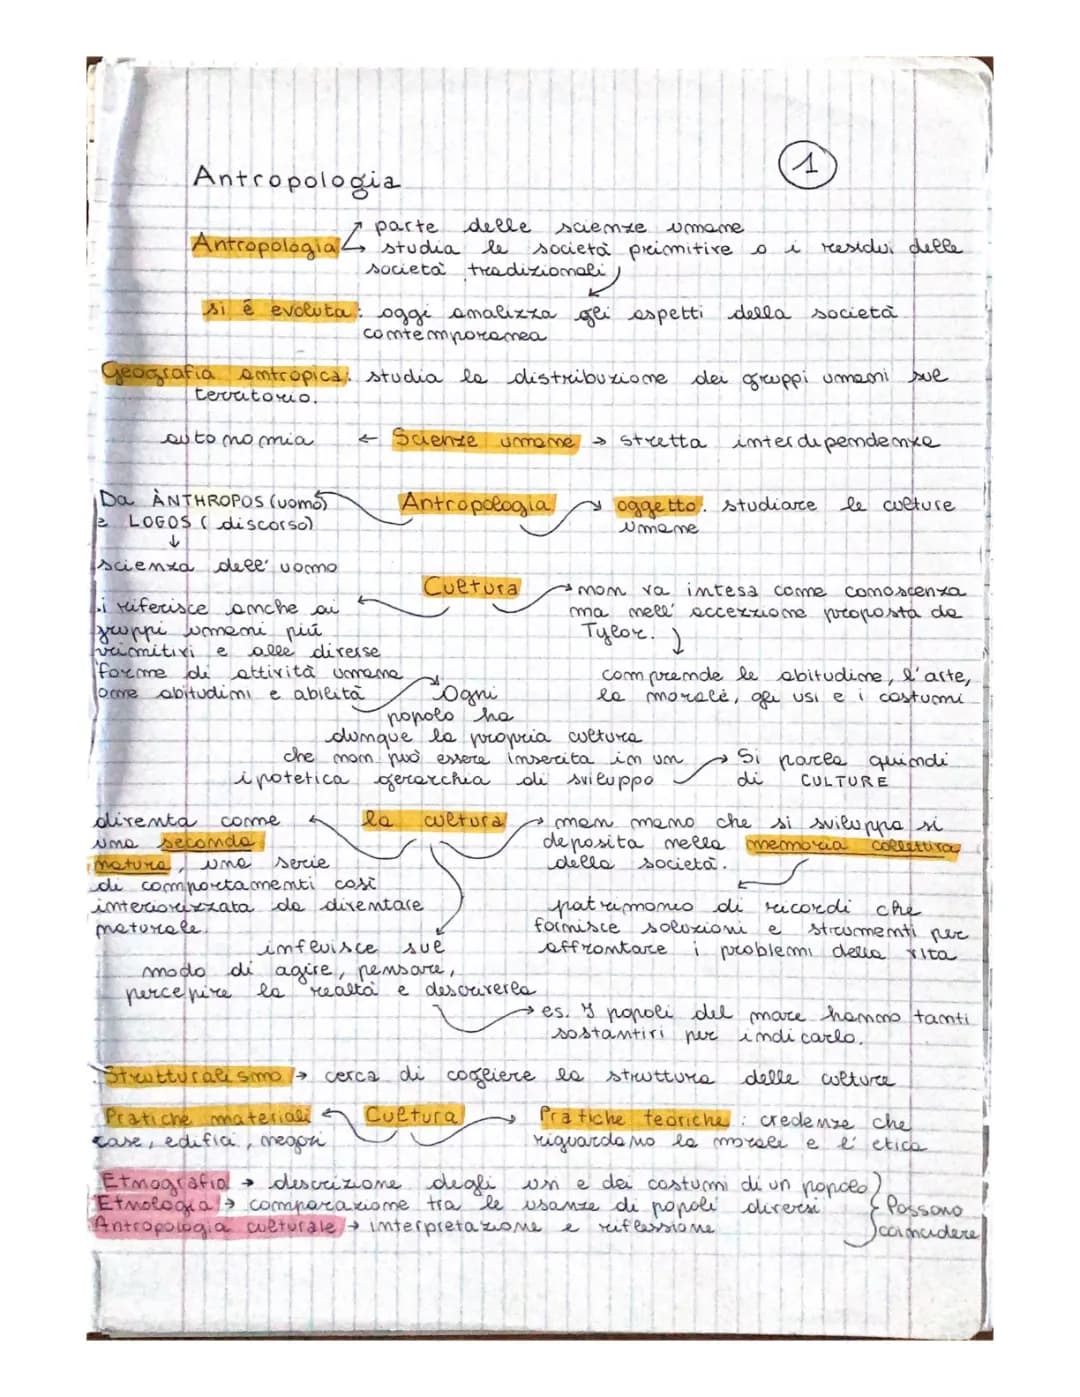 1
Antropologia
parte delle scienze umane
Antropologia studia le società primitive o i residui delle
società tradizionali
si é evoluta: oggi analizza gli aspetti della società
contemporanea
Geografia antropica: studia la distribuzione dei gruppi umani sul
territorio.
autonomia ← Scienze umane → stretta interdipendenza
Da ÀNTHROPOS (uomo)
e LOGOS (discorso)
↓
scienza dell' uomo
Antropologia
oggetto: studiare le culture
umane
Cultura
non va intesa come conoscenza
ma nell' accezzione proposta da
Tylor.
comprende le abitudine, l'arte,
la morale, gli usi e i costumi
si riferisce anche ai
gruppi umani più
primitivi e alle diverse
forme di attività umana
come abitudini e abilità
Ogni
popolo ha
dunque la propria cultura
che non può essere inserita in un
ipotetica gerarchia di sviluppo
Si parla quindi
di CULTURE
la cultura
diventa come
una seconda
natura, una serie
di comportamenti così
interiorizzata da diventare
naturale.
man mano che si sviluppa si
deposita nella memoria collettiva
della società.
patrimonio di ricordi che
fornisce soluzioni e strumenti per
affrontare i problemi della vita
influisce sul
modo di agire, pensare,
percepire la realtà e descriverla
es. I popoli del mare hanno tanti
sostantivi per indicarlo.
Strutturalismo → cerca di cogliere la struttura delle culture
Pratiche materiali Cultura Pratiche teoriche: credenze che
case, edifici, negozi riguardano la morale e l' etica
Etnografia → descrizione degli usi e dei costumi di un popolo
Etnologia → comparazione tra le usanze di popoli diversi
Antropologia culturale → interpretazione e riflessione
Possono
coincidere